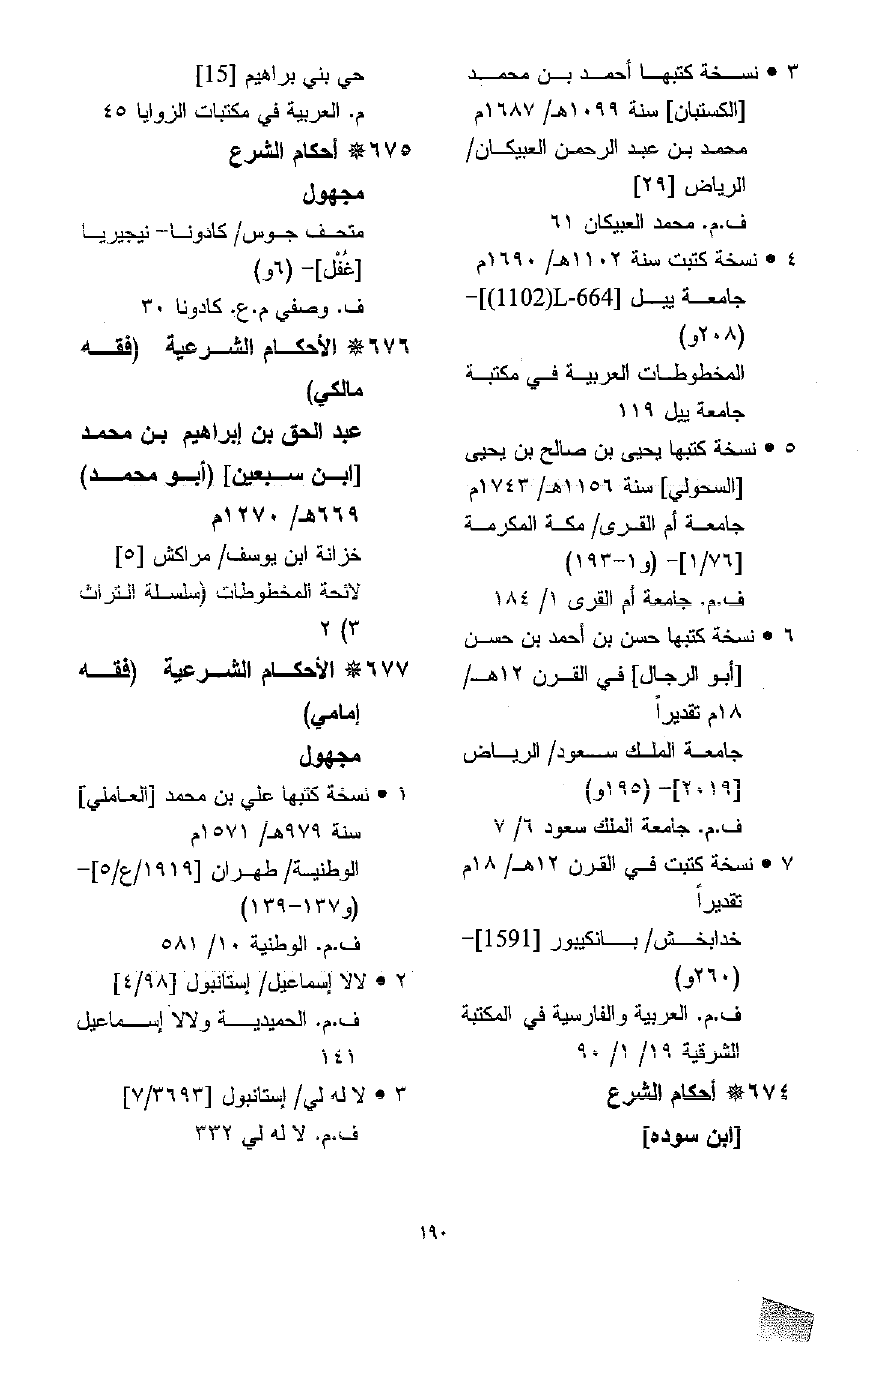 ٣ • نسخة كتبها أحمد بن محمد
[الكستبان] سنة ١٠٩٩هـ/ ١٦٨٧م
محمد بن عبد الرحمن العبيكان/
الرياض [٢٩]
ف.م. محمد العبيكان ٦١
٤ • نسخة كتبت سنة ١١٠٢هـ/ ١٦٩٠م
جامعة ييل [L-664(1102)]-
(٢٠٨و)
المخطوطات العربية في مكتبة
جامعة ييل ١١٩
٥ • نسخة كتبها يحيى بن صالح بن يحيى
[السحولي] سنة ١١٥٦هـ/ ١٧٤٣م
جامعة أم القرى/ مكة المكرمة
[١/٧٦]- (و١-١٩٣)
ف.م. جامعة أم القرى ١/ ١٨٤
٦ • نسخة كتبها حسن بن أحمد بن حسن
[أبو الرجال] في القرن ١٢هـ/
١٨م تقديراً
جامعة الملك سعود/ الرياض
[٢٠١٩]- (١٩٥و)
ف.م. جامعة الملك سعود ٦/ ٧
٧ • نسخة كتبت في القرن ١٢هـ/ ١٨م
تقديراً
خدابخش/ بانكيبور [1591]-
(٢٦٠و)
ف.م. العربية والفارسية في المكتبة
الشرقية ١٩/ ١/ ٩٠
٦٧٤* أحكام الشرع
[ابن سوده]
حي بني براهيم [15]
م. العربية في مكتبات الزوايا ٤٥
٦٧٥* أحكام الشرع
مجهول
متحف جوس/ كادونا- نيجيريا
[غُفْل]- (٦و)
ف. وصفي م.ع. كادونا ٣٠
٦٧٦* الأحكام الشرعية (فقه
مالكي)
عبد الحق بن إبراهيم بن محمد
[ابن سبعين] (أبو محمد)
٦٦٩هـ/ ١٢٧٠م
خزانة ابن يوسف/ مراكش [٥]
لائحة المخطوطات (سلسلة التراث
٣) ٢
٦٧٧* الأحكام الشرعية (فقه
إمامي)
مجهول
١ • نسخة كتبها علي بن محمد [العاملي]
سنة ٩٧٩هـ/ ١٥٧١م
الوطنية/ طهران [١٩١٩/ع/٥]-
(و١٣٧-١٣٩)
ف.م. الوطنية ١٠/ ٥٨١
٢ • لالا إسماعيل/ إستانبول [٤/٩٨]
ف.م. الحميدية ولالا إسماعيل
١٤١
٣ • لا له لي/ إستانبول [٧/٣٦٩٣]
ف.م. لا له لي ٣٣٢
١٩٠